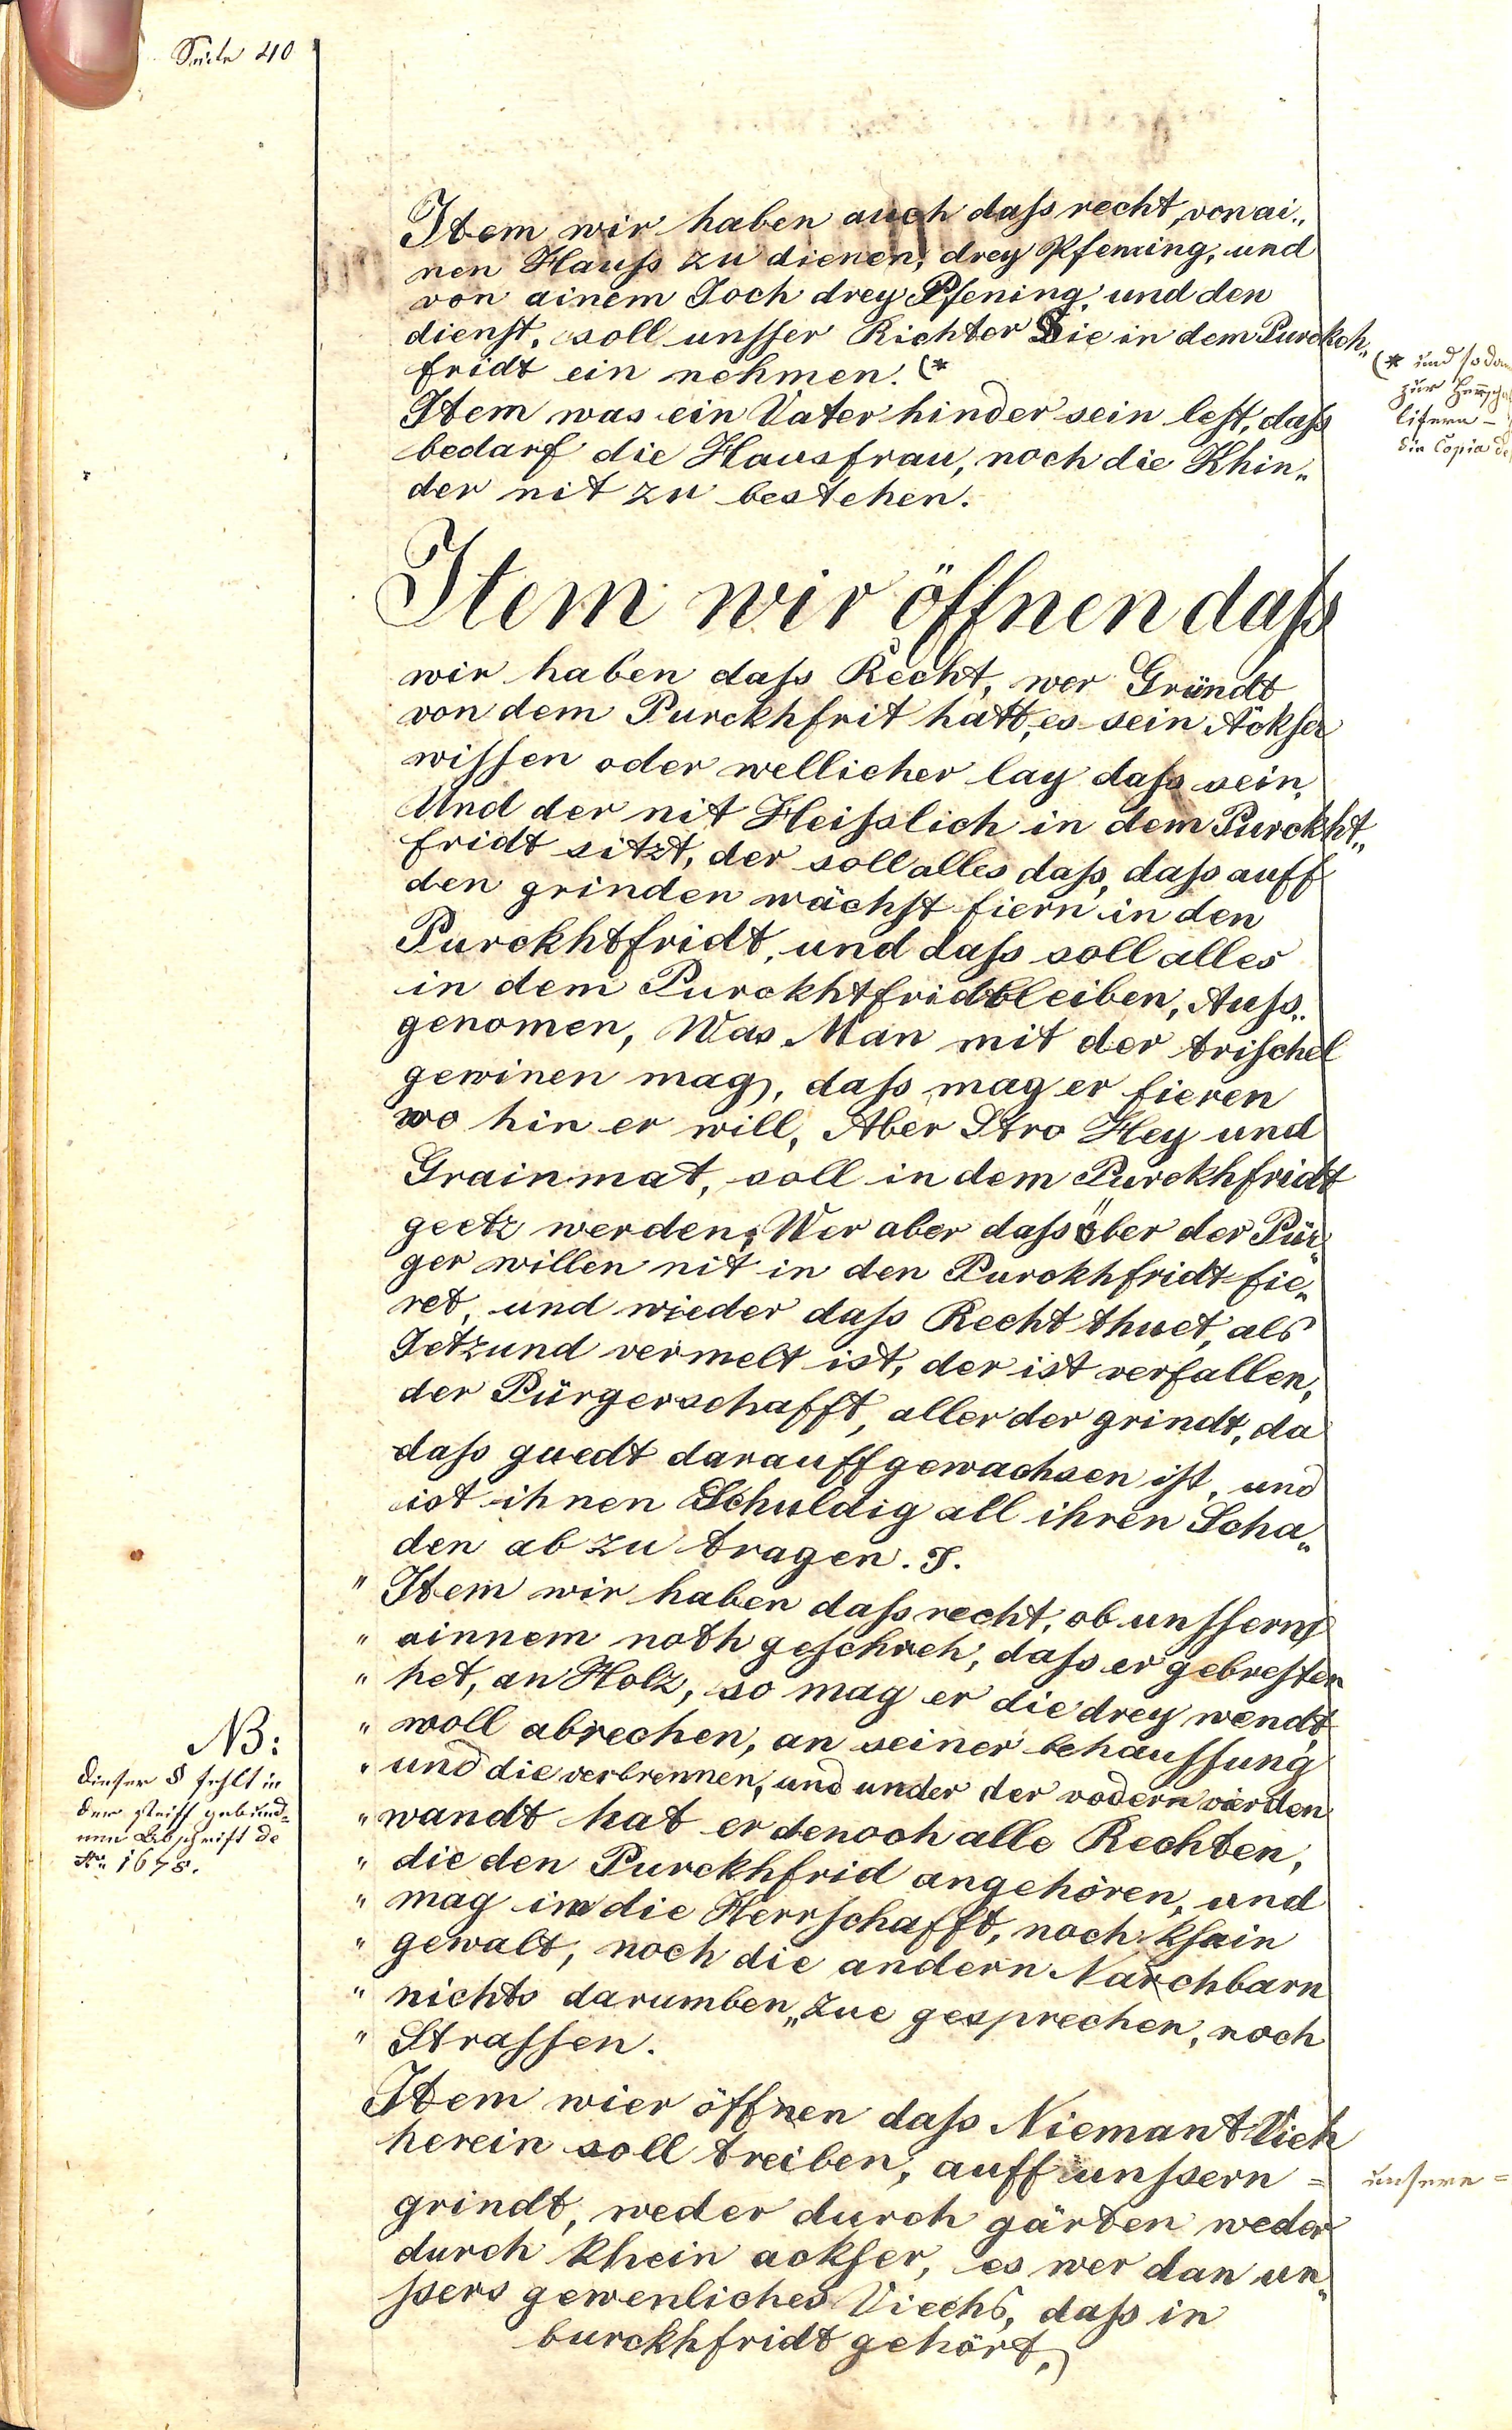 Seite 40
Item wir haben auch daſs recht, von ai„
nen Hauſs zu dienen, drey Pfening, und
von ainem Joch drey Pfening, und den
dienſt, soll unſser Richter Sie in dem Purckh„
fridt ein nehmen. (*
(* und sodan
zur Herrſcha
lifern –
die Copia de
Item was ein Vater hinder sein leſt, daſs
bedarf die Hausfrau, noch die Khin„
der nit zu bestehen.
Item wir öffnen daſs
wir haben daſs Recht, wer Gründt
von dem Purckhfrit hatt, es sein Äckher
wiſsen oder wellicher lay daſs sein,
Und der nit Heiſslich in dem Purckht„
fridt sitzt, der soll alles daſs, daſs auff
den grinden wächſt fiern in den
Purckhtfridt, und daſs soll alles
in dem Purckhtfridt bleiben, Auſs„
genomen, Was Man mit der triſchel
gewinen mag, daſs mag er fieren
wo hin er will, Aber Stro Hey und
Grainmat, soll in dem Purckhfridt
geetz werden, Wer aber daſs über der Pür
ger willen nit in den Purckhfridt fie„
ret, und wieder daſs Recht thuet, als
Jetzund vermelt ist, der ist verfallen,
der Pürgerschafft, aller der grindt, da
daſs guedt darauff gewachsen iſt, und
ist ihnen Schuldig all ihren Scha„
den ab zu tragen.
" Item wir haben daſs recht, ob unſserns
" ainnem noth geſcheh, daſs er gebreſten
" het, an Holz, so mag er die drey wendt
" woll abrechen, an seiner behauſsung
" und die verbrennen, und under der vodern vierden
" wandt hat er denoch alle Rechten,
" die den Purckhfrid angehören, und
" mag im die Herrſchafft, noch khain
" gewalt, noch die andern Nachbarn
" nichts darumben„ zue gesprechen, noch
" Straſsen.
NB:
Dieser § fehlt in
der steiff gebund=
nen Abschrift de
Ao 1678.
Item wier öffnen daſs Niemant Vieh
herein soll treiben, auff unſsern =
unsere =
grindt, weder durch gärten weder
durch khein ackher, es wer dan un„
ſsers gewenliches Viechs, daſs in
burckhfridt gehört,